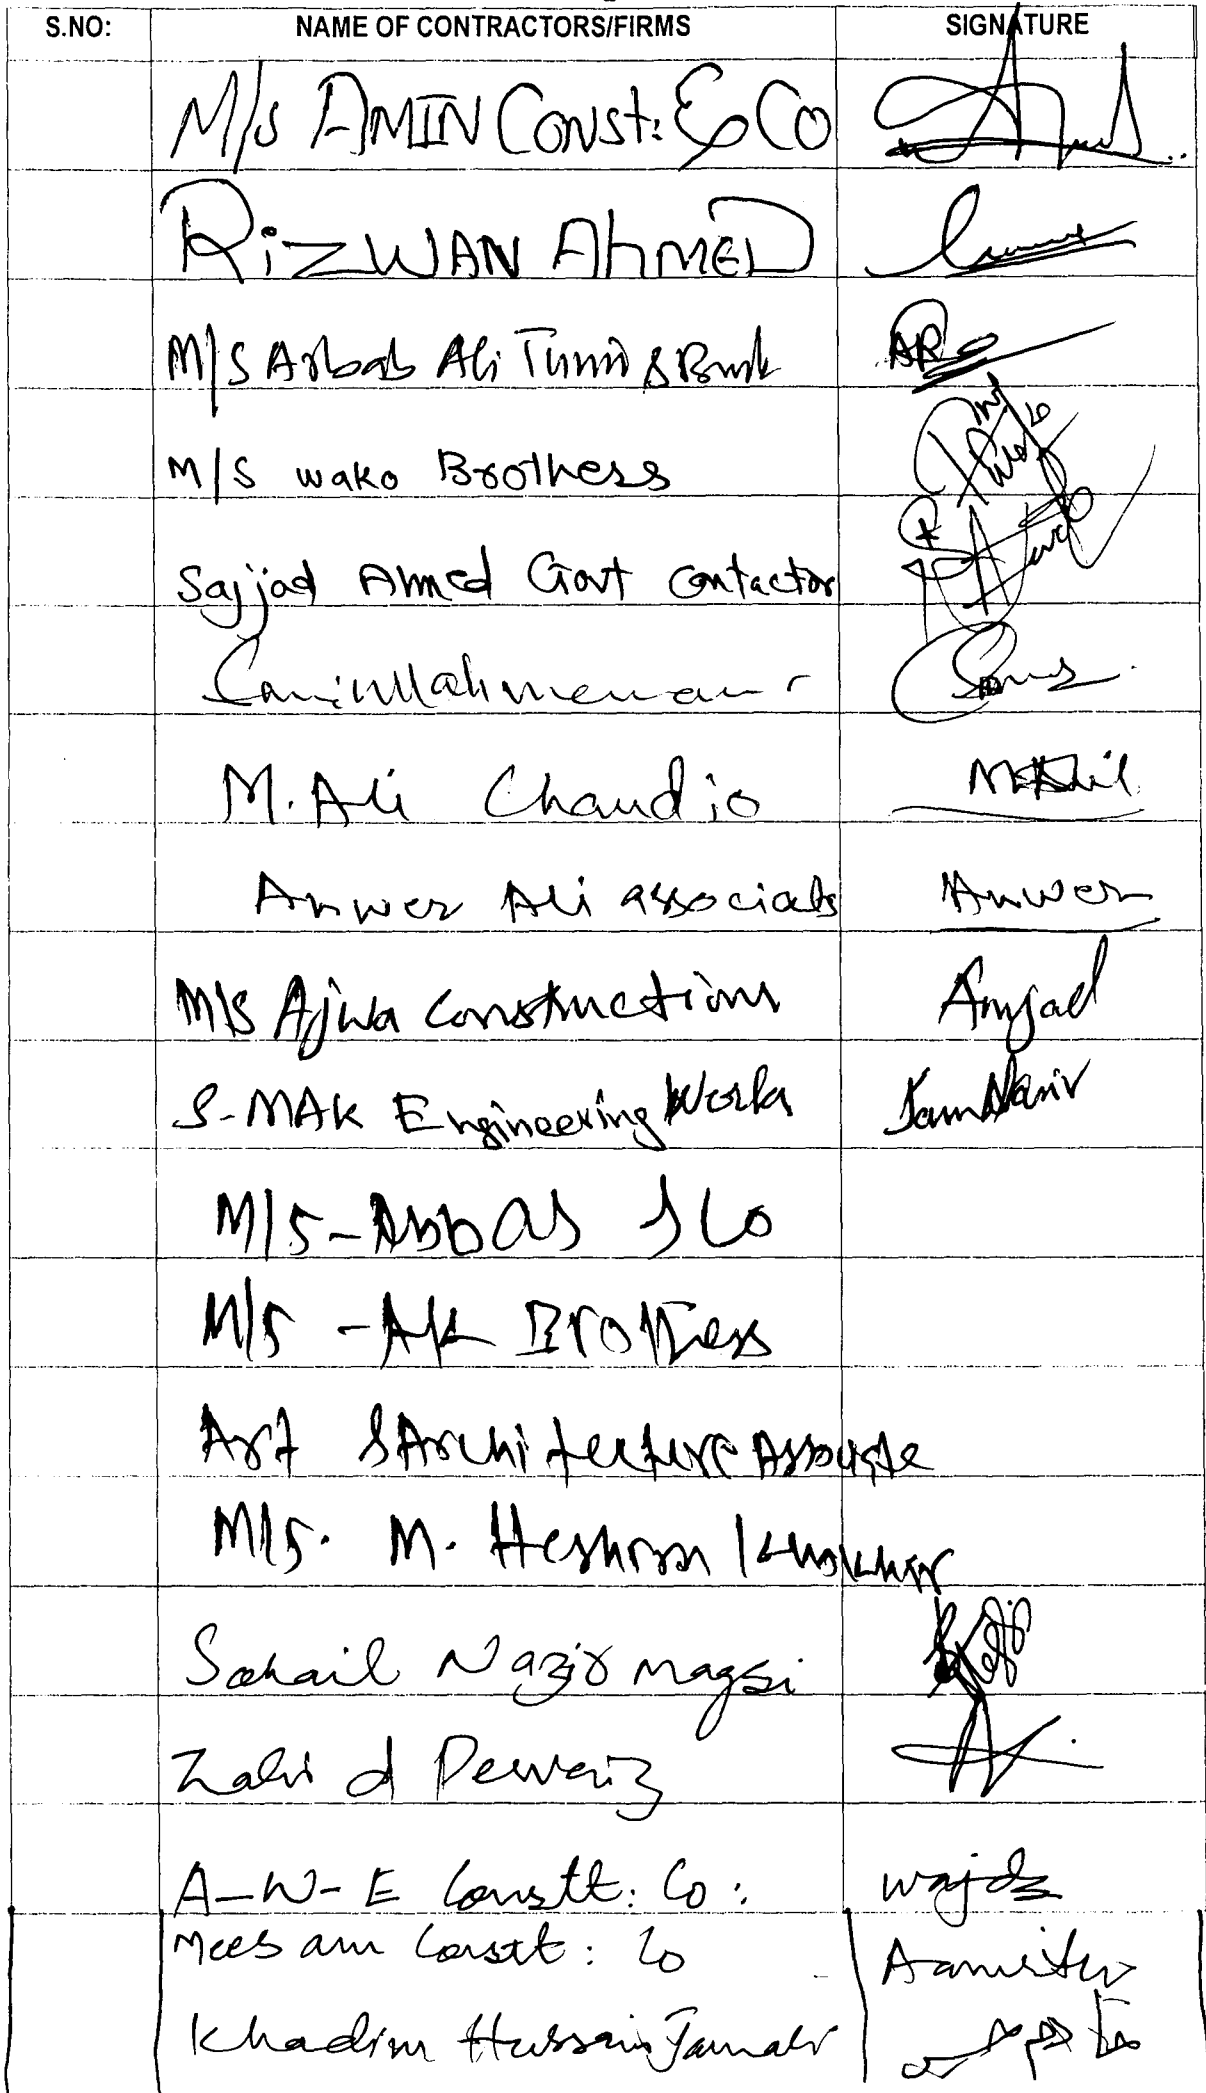 S.NO: NAME OF CONTRACTORS/FIRMS SIGNATURE
M/s AMIN Const: & Co
RizWAN AhMED
M/S Arbab Ali
M/S wako Brothers
Sajjad Ahmed Govt Contactor
Samiullah memon
M. Ali Chandio M.Ali
Anwer Ali associats Anwer
M/S Ajwa Constructions Amjad
S-MAK Engineering Works Jam Nasir
M/S-Abbas & Co
M/S -AK Brothers
Art & Architecture Associate
M/S. M. Hashim Khokhar
Sohail Nazir magsi
Zahid Perveiz
A-W-E Constt: Co:
Meesam Constt: Co
Khadim Hussain Jamali